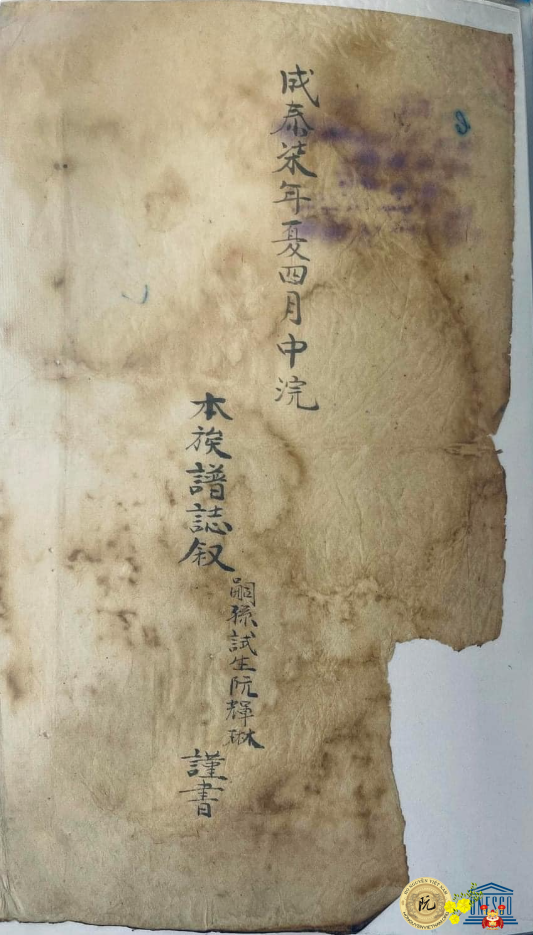 成泰柒年夏四月中浣
本族譜誌叙
嗣孫試生阮輝琳
謹書
阮
UNESCO